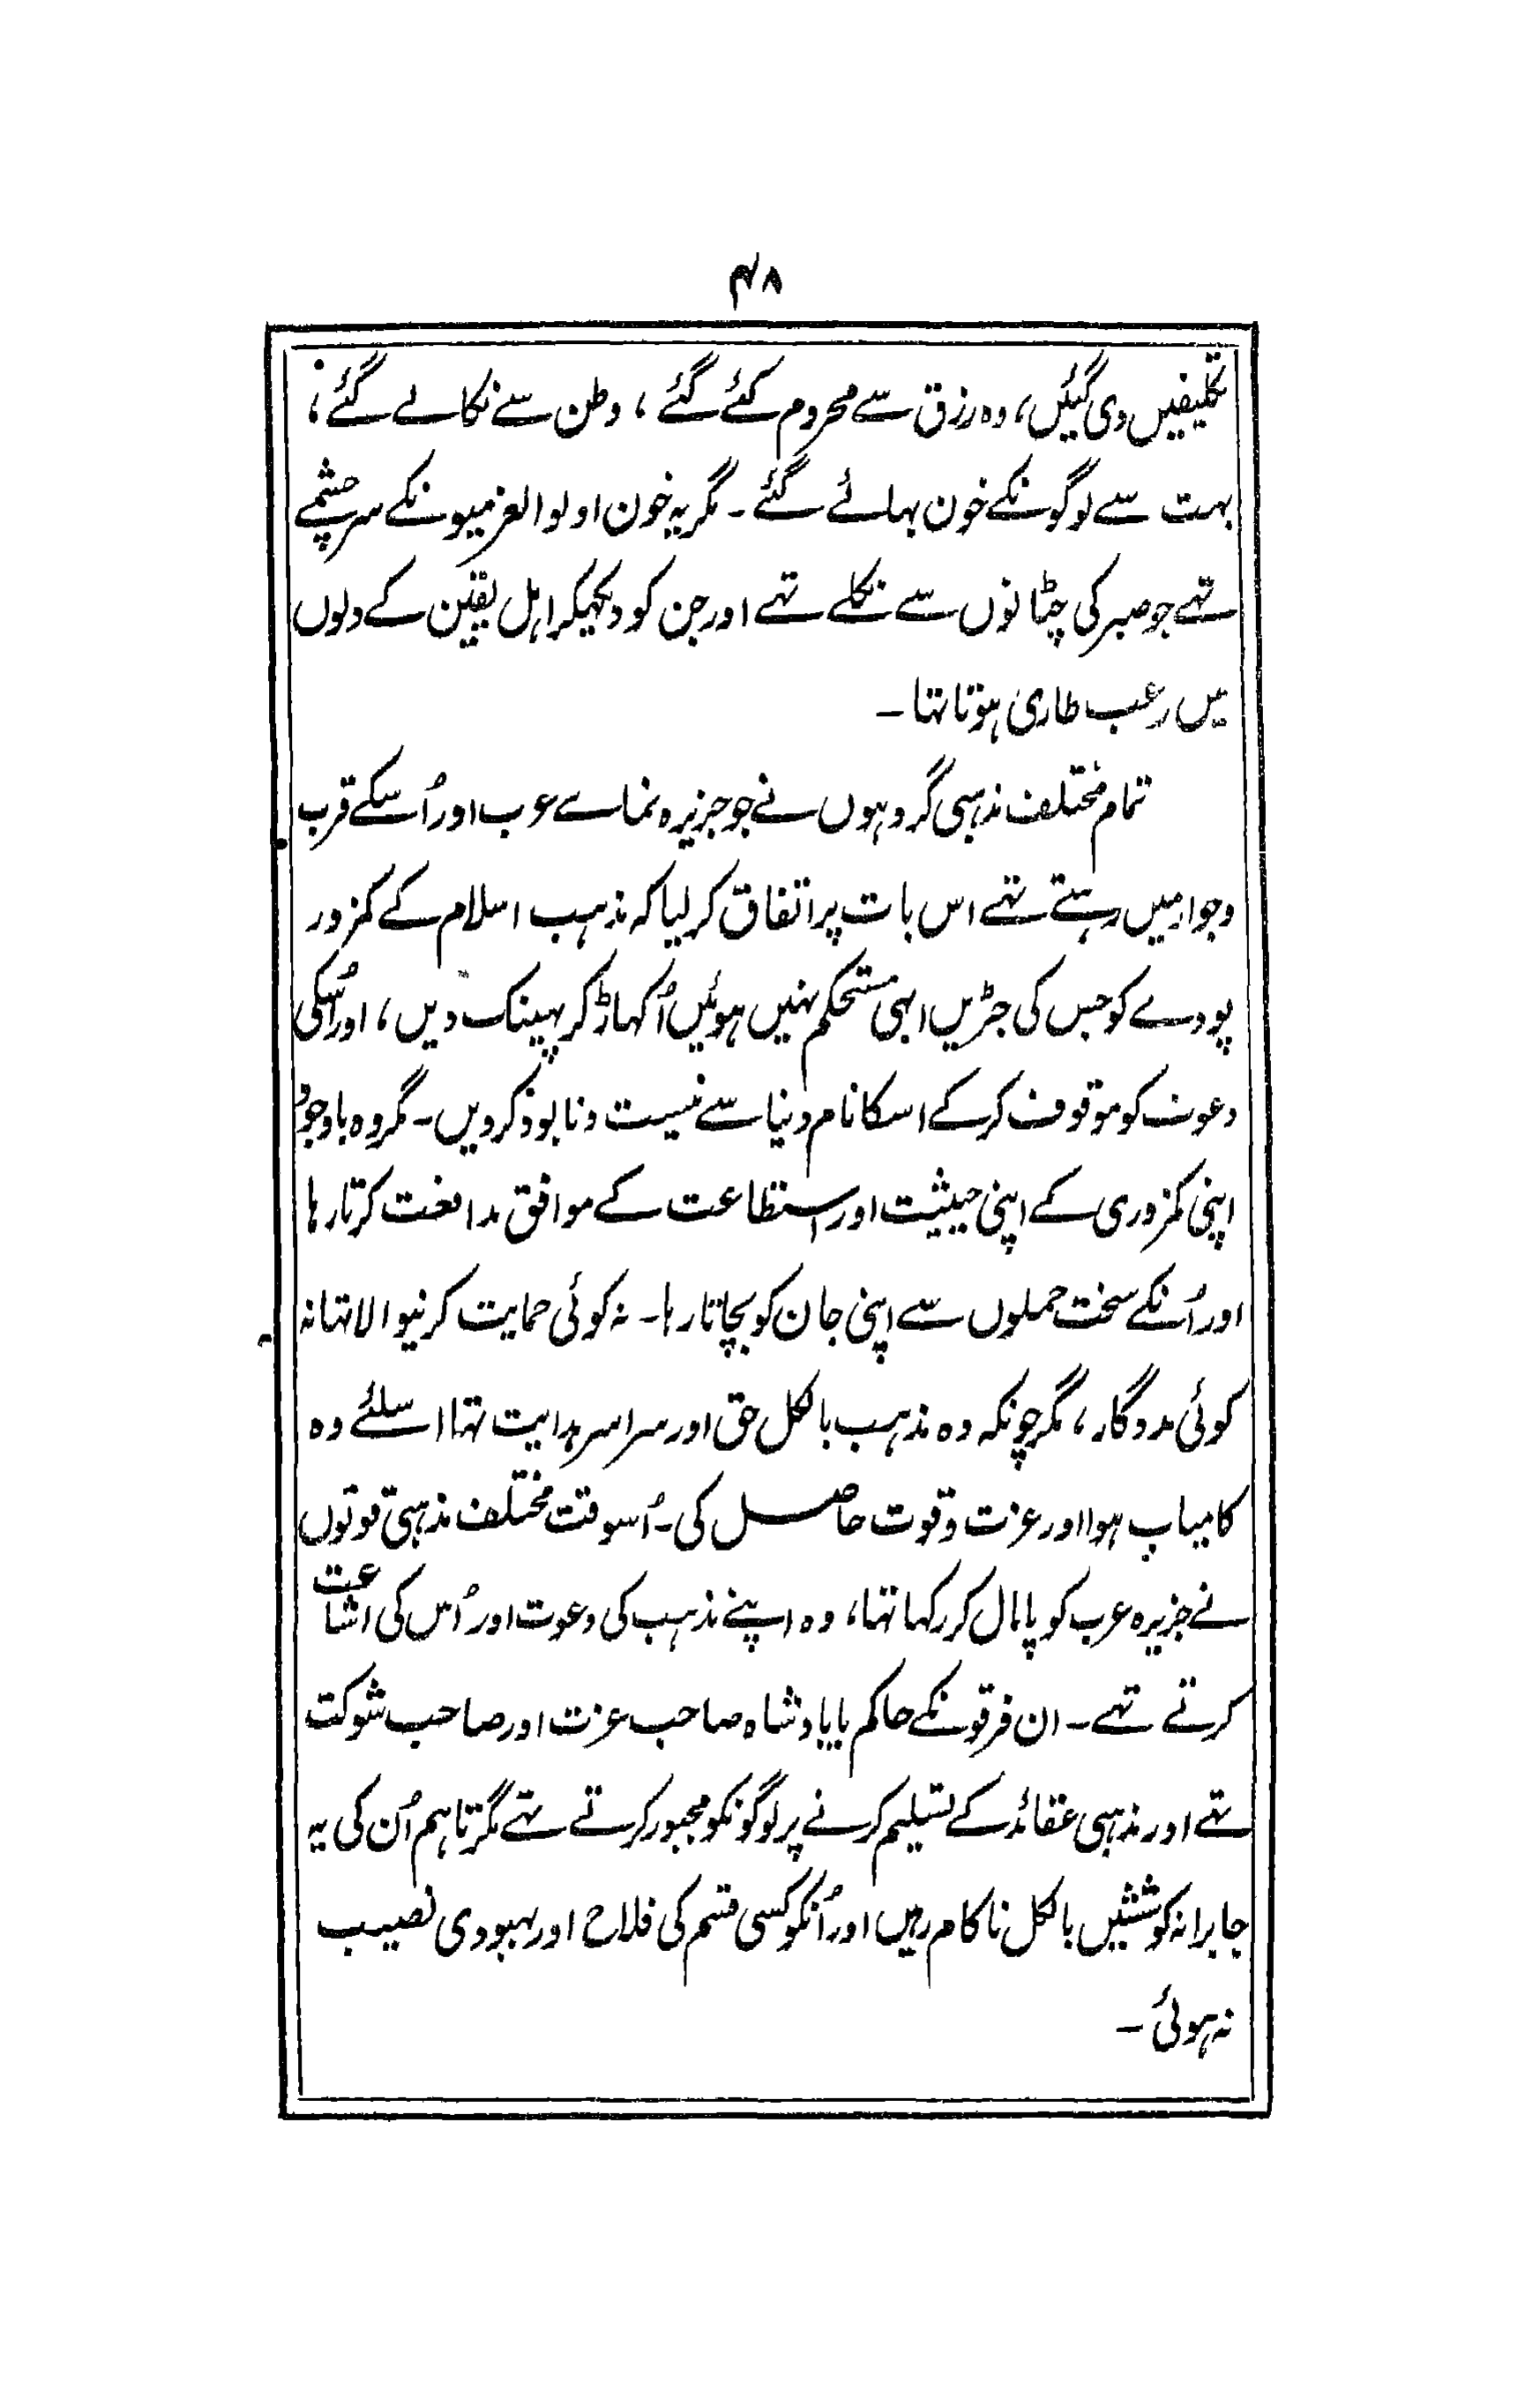 ۴۸
تکلیفیں دی گیئں، وہ رزق سے محروم کئے گئے ، وطن سے نکالے گئے ،
بہت سے لوگونکے خون بہائے گئے ۔ مگر یہ خون اولو العزمیونکے سرچشمے
تہے جو صبر کی چٹانوں سے نکلے تہے اور جن کو دیکہیکر اہل یقین کے دلوں
میں رعب طاری ہوتا تہا ۔
تمام مختلف مذہبی گروہوں نے جو جزیرہ نماے عرب اور اُسکے قرب
وجوار میں رہتے تہے اس بات پر اتفاق کر لیا کہ مذہب اسلام کے کمزور
پودے کو جس کی جڑیں ابہی مستحکم نہیں ہوئیں اُکہاڑ کر پہینک دیں ، اور اُسکی
دعوت کو موقوف کرکے اسکا نام دنیا سے نیست و نابود کردیں ۔ مگر وہ باوجود
اپنی کمزوری کے اپنی حیثیت اور استطاعت کے موافق مدافعت کرتا رہا
اور اُنکے سخت حملوں سے اپنی جان کو بچاتا رہا ۔ نہ کوئی حمایت کرنیوالا تہا نہ
کوئی مددگار ، مگر چونکہ وہ مذہب بالکل حق اور سراسر ہدایت تہا اسلئے وہ
کامیاب ہوا اور عزت وقوت حاصل کی ۔ اُسوقت مختلف مذہبی قوتوں
نے جزیرہ عرب کو پامال کر رکہا تہا ، وہ اپنے مذہب کی دعوت اور اُس کی اشاعت
کرتے تہے ۔ ان فرقونکے حاکم یا بادشاہ صاحب عزت اور صاحب شوکت
تہے اور مذہبی عقائد کے تسلیم کرنے پر لوگونکو مجبور کرتے تہے مگر تاہم اُن کی یہ
جابرانہ کوششیں بالکل ناکام رہیں اور اُنکو کسی قسم کی فلاح اور بہبودی نصیب
نہ ہوئی ۔